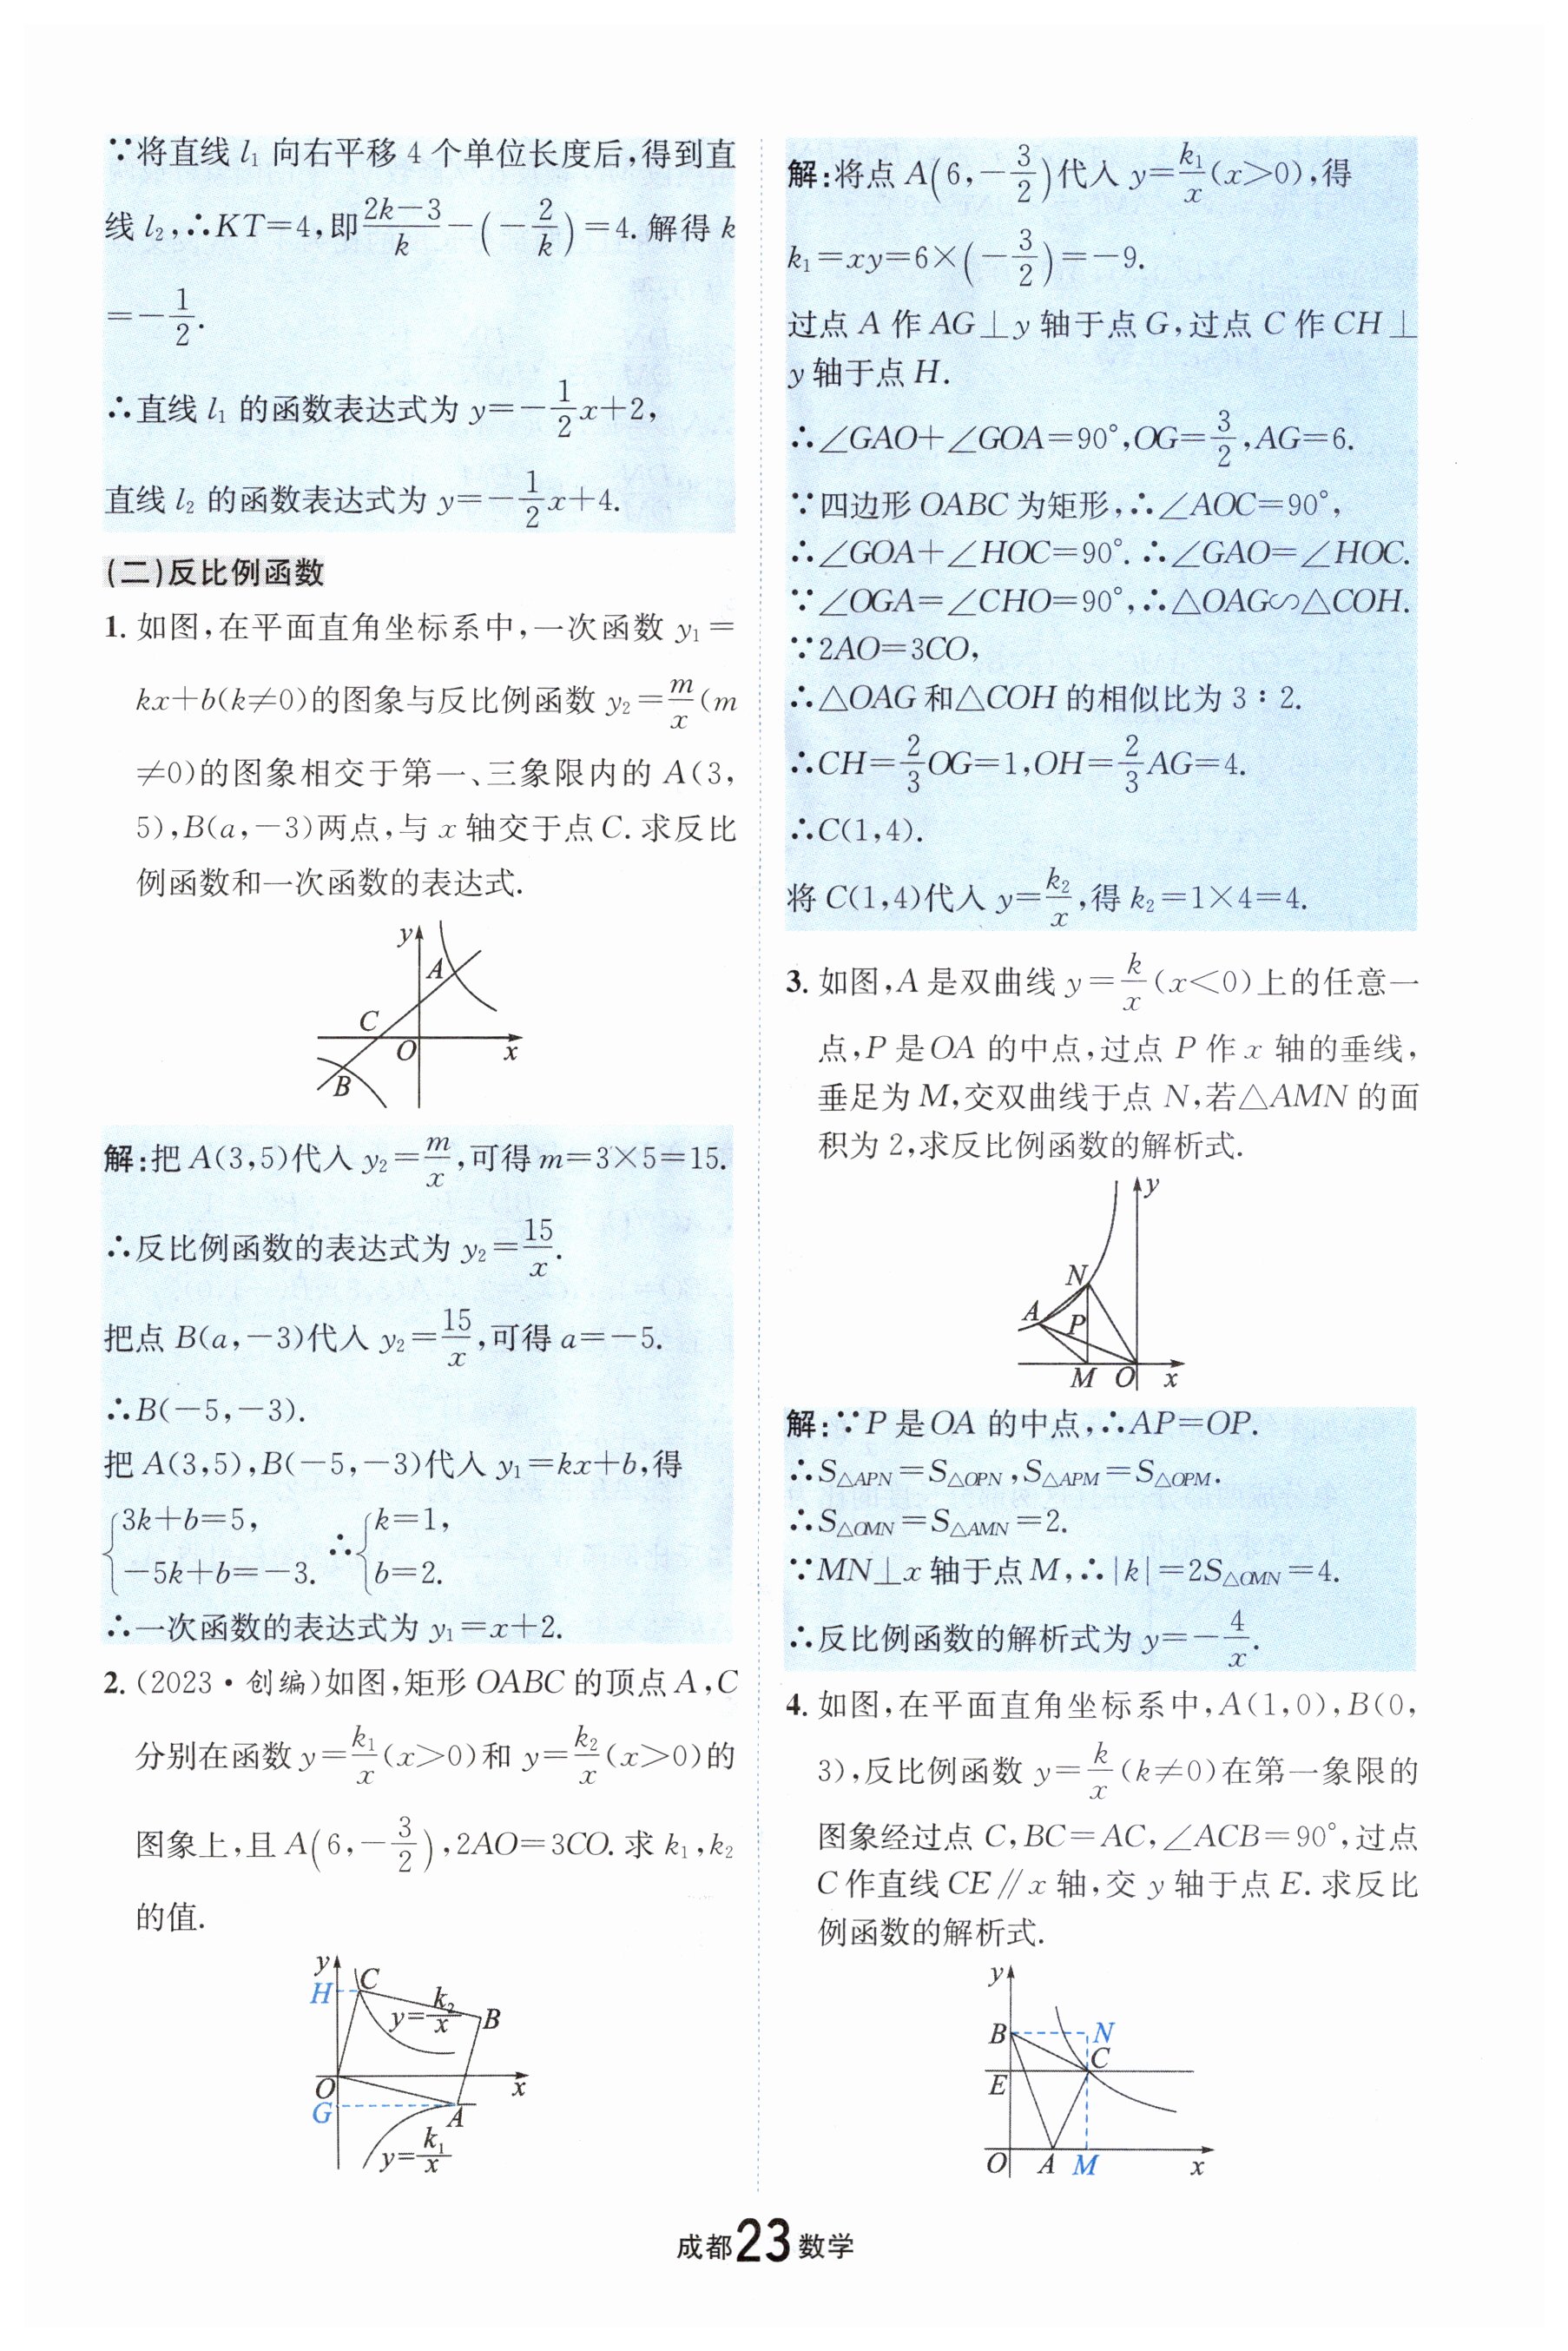 ∵将直线 l₁ 向右平移 4 个单位长度后,得到直
线 l₂,∴KT=4,即(2k-3)/k-(-2/k)=4. 解得 k
=-1/2.
∴直线 l₁ 的函数表达式为 y=-1/2x+2,
直线 l₂ 的函数表达式为 y=-1/2x+4.
(二)反比例函数
1. 如图,在平面直角坐标系中,一次函数 y₁=
kx+b(k≠0)的图象与反比例函数 y₂=m/x(m
≠0)的图象相交于第一、三象限内的 A(3,
5),B(a,-3)两点,与 x 轴交于点 C. 求反比
例函数和一次函数的表达式.
y
A
C
O
x
B
解:把 A(3,5)代入 y₂=m/x,可得 m=3×5=15.
∴反比例函数的表达式为 y₂=15/x.
把点 B(a,-3)代入 y₂=15/x,可得 a=-5.
∴B(-5,-3).
把 A(3,5),B(-5,-3)代入 y₁=kx+b,得
{3k+b=5, ∴{k=1,
-5k+b=-3. b=2.
∴一次函数的表达式为 y₁=x+2.
2. (2023·创编)如图,矩形 OABC 的顶点 A,C
分别在函数 y=k₁/x(x>0)和 y=k₂/x(x>0)的
图象上,且 A(6,-3/2),2AO=3CO. 求 k₁,k₂
的值.
y
H
C
y=k₂/x
B
O
x
G
A
y=k₁/x
解:将点 A(6,-3/2)代入 y=k₁/x(x>0),得
k₁=xy=6×(-3/2)=-9.
过点 A 作 AG⊥y 轴于点 G,过点 C 作 CH⊥
y 轴于点 H.
∴∠GAO+∠GOA=90°,OG=3/2,AG=6.
∵四边形 OABC 为矩形,∴∠AOC=90°,
∴∠GOA+∠HOC=90°. ∴∠GAO=∠HOC.
∵∠OGA=∠CHO=90°,∴△OAG∽△COH.
∵2AO=3CO,
∴△OAG 和△COH 的相似比为 3∶2.
∴CH=2/3OG=1,OH=2/3AG=4.
∴C(1,4).
将 C(1,4)代入 y=k₂/x,得 k₂=1×4=4.
3. 如图,A 是双曲线 y=k/x(x<0)上的任意一
点,P 是 OA 的中点,过点 P 作 x 轴的垂线,
垂足为 M,交双曲线于点 N,若△AMN 的面
积为 2,求反比例函数的解析式.
y
N
A
P
M
O
x
解:∵P 是 OA 的中点,∴AP=OP.
∴S△APN=S△OPN,S△APM=S△OPM.
∴S△OMN=S△AMN=2.
∵MN⊥x 轴于点 M,∴|k|=2S△OMN=4.
∴反比例函数的解析式为 y=-4/x.
4. 如图,在平面直角坐标系中,A(1,0),B(0,
3),反比例函数 y=k/x(k≠0)在第一象限的
图象经过点 C,BC=AC,∠ACB=90°,过点
C 作直线 CE∥x 轴,交 y 轴于点 E. 求反比
例函数的解析式.
y
B
N
C
E
O
A
M
x
成都 23 数学